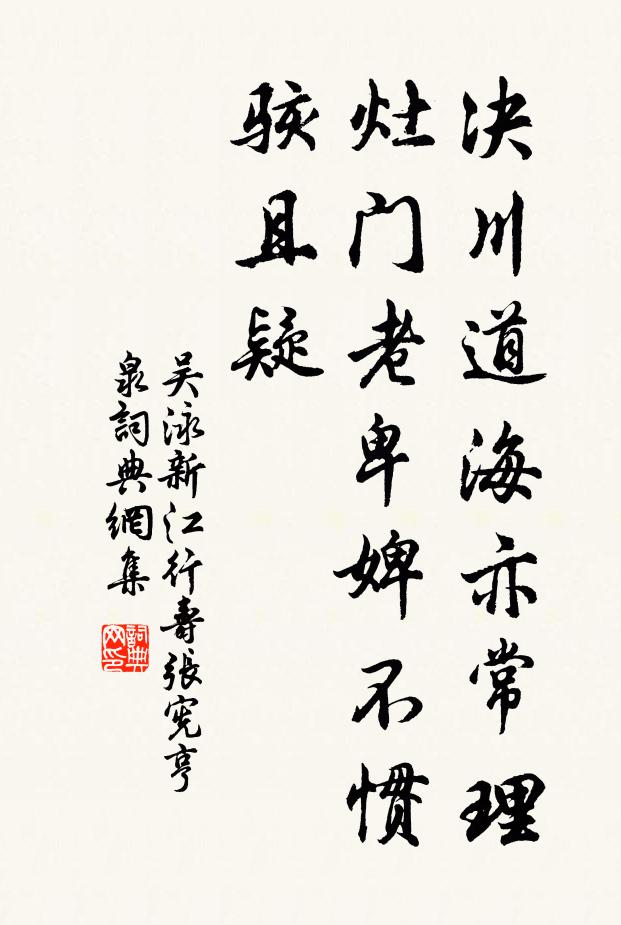 决川道海亦常理
灶门老卑婢不惯
骇且疑
吴泳新江行壽張宪亨
泉詞典網集
詞典
网印